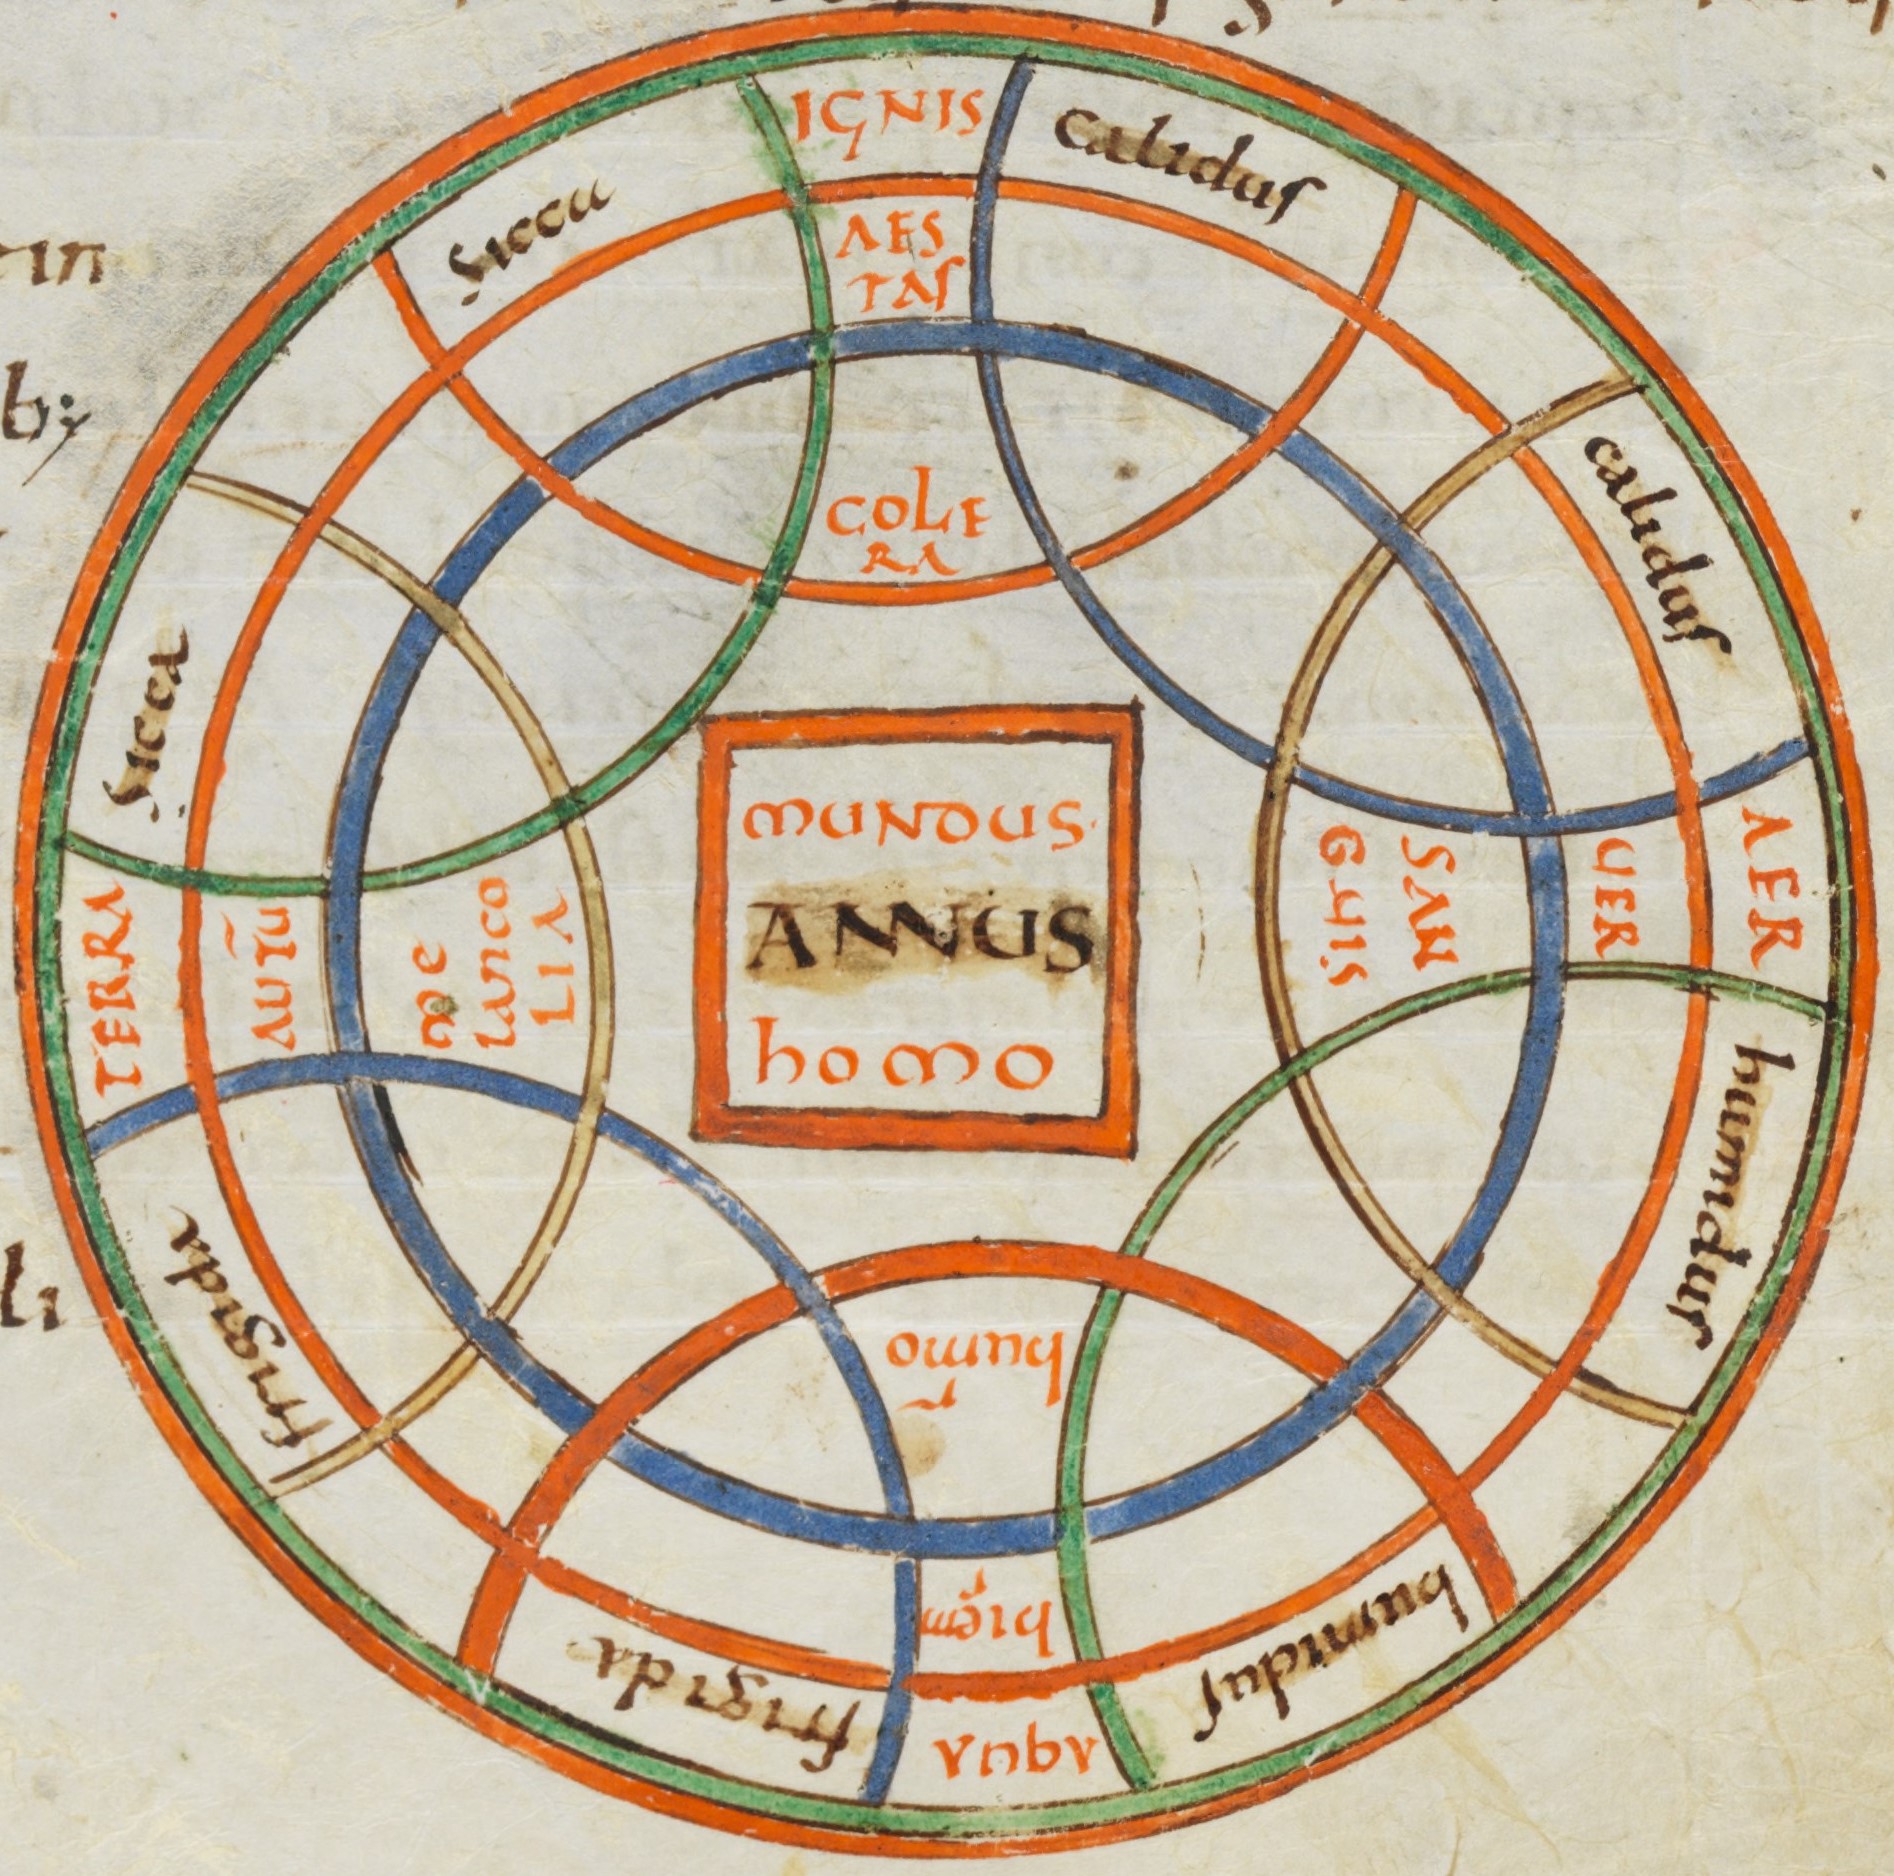 IGNIS
calidus
sicca
AES
TAS
COLE
RA
calidus
sicca
mundus.
ANNUS
homo
AER
UER
SAN
GUIS
TERRA
AUTŪ
me
lanco
LIA
humidus
frigida
humo
hiem
AQUA
frigida
humidus
in
b;
li